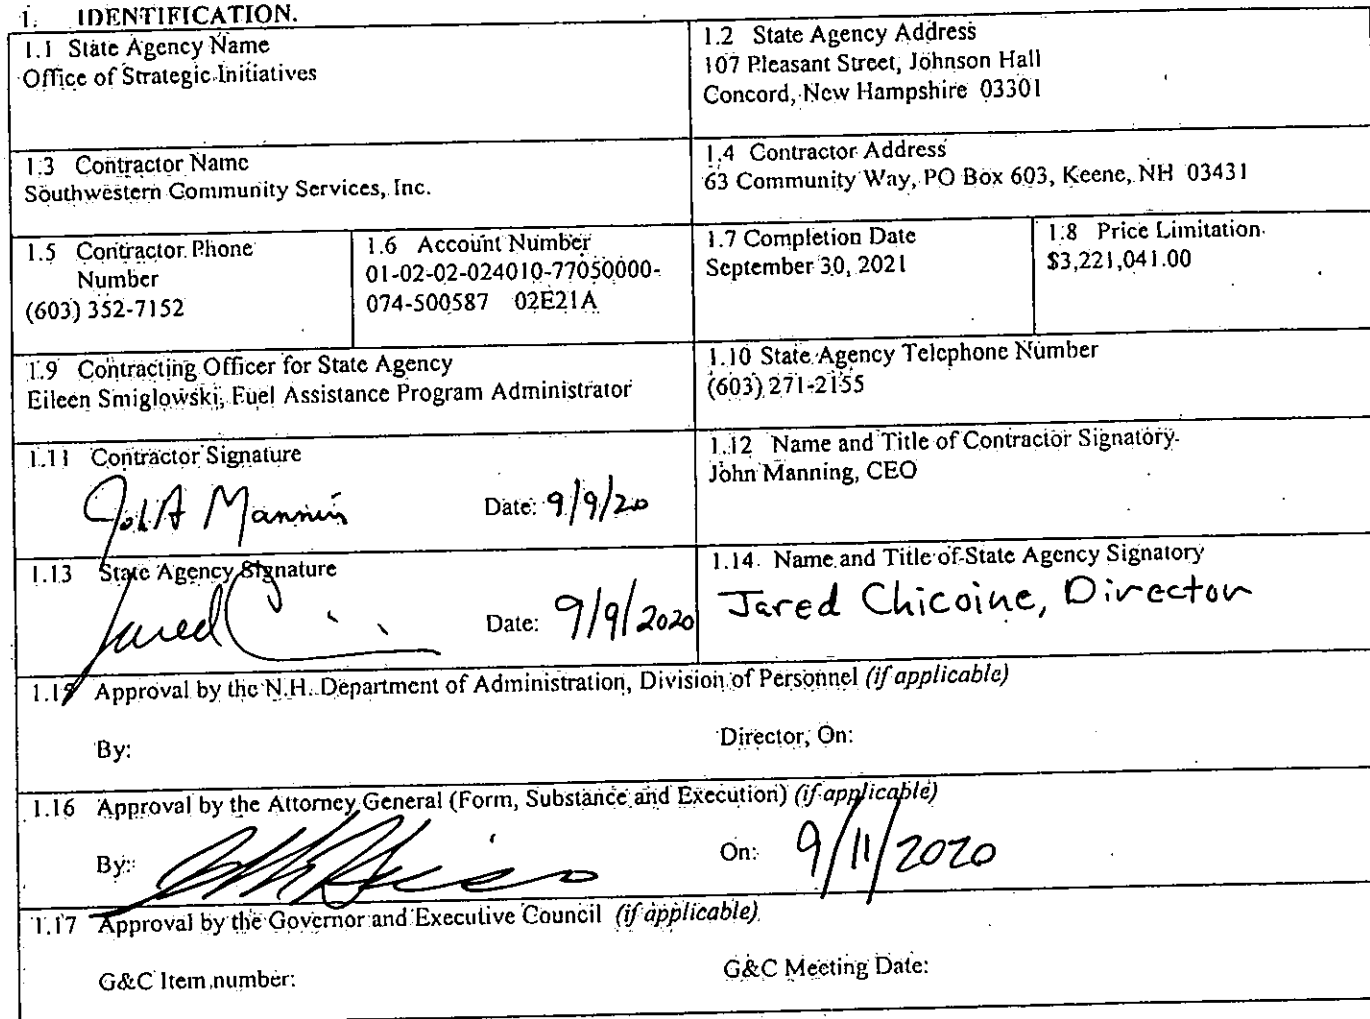 1. IDENTIFICATION.
1.1 State Agency Name
Office of Strategic Initiatives
1.2 State Agency Address
107 Pleasant Street, Johnson Hall
Concord, New Hampshire 03301
1.3 Contractor Name
Southwestern Community Services, Inc.
1.4 Contractor Address
63 Community Way, PO Box 603, Keene, NH 03431
1.5 Contractor Phone
Number
(603) 352-7152
1.6 Account Number
01-02-02-024010-77050000-
074-500587 02E21A
1.7 Completion Date
September 30, 2021
1.8 Price Limitation
$3,221,041.00
1.9 Contracting Officer for State Agency
Eileen Smiglowski, Fuel Assistance Program Administrator
1.10 State Agency Telephone Number
(603) 271-2155
1.11 Contractor Signature
John A Manning Date: 9/9/20
1.12 Name and Title of Contractor Signatory
John Manning, CEO
1.13 State Agency Signature
Jared C Date: 9/9/2020
1.14. Name and Title of State Agency Signatory
Jared Chicoine, Director
1.15 Approval by the N.H. Department of Administration, Division of Personnel (if applicable)
By: Director, On:
1.16 Approval by the Attorney General (Form, Substance and Execution) (if applicable)
By: On: 9/11/2020
1.17 Approval by the Governor and Executive Council (if applicable)
G&C Item number: G&C Meeting Date: